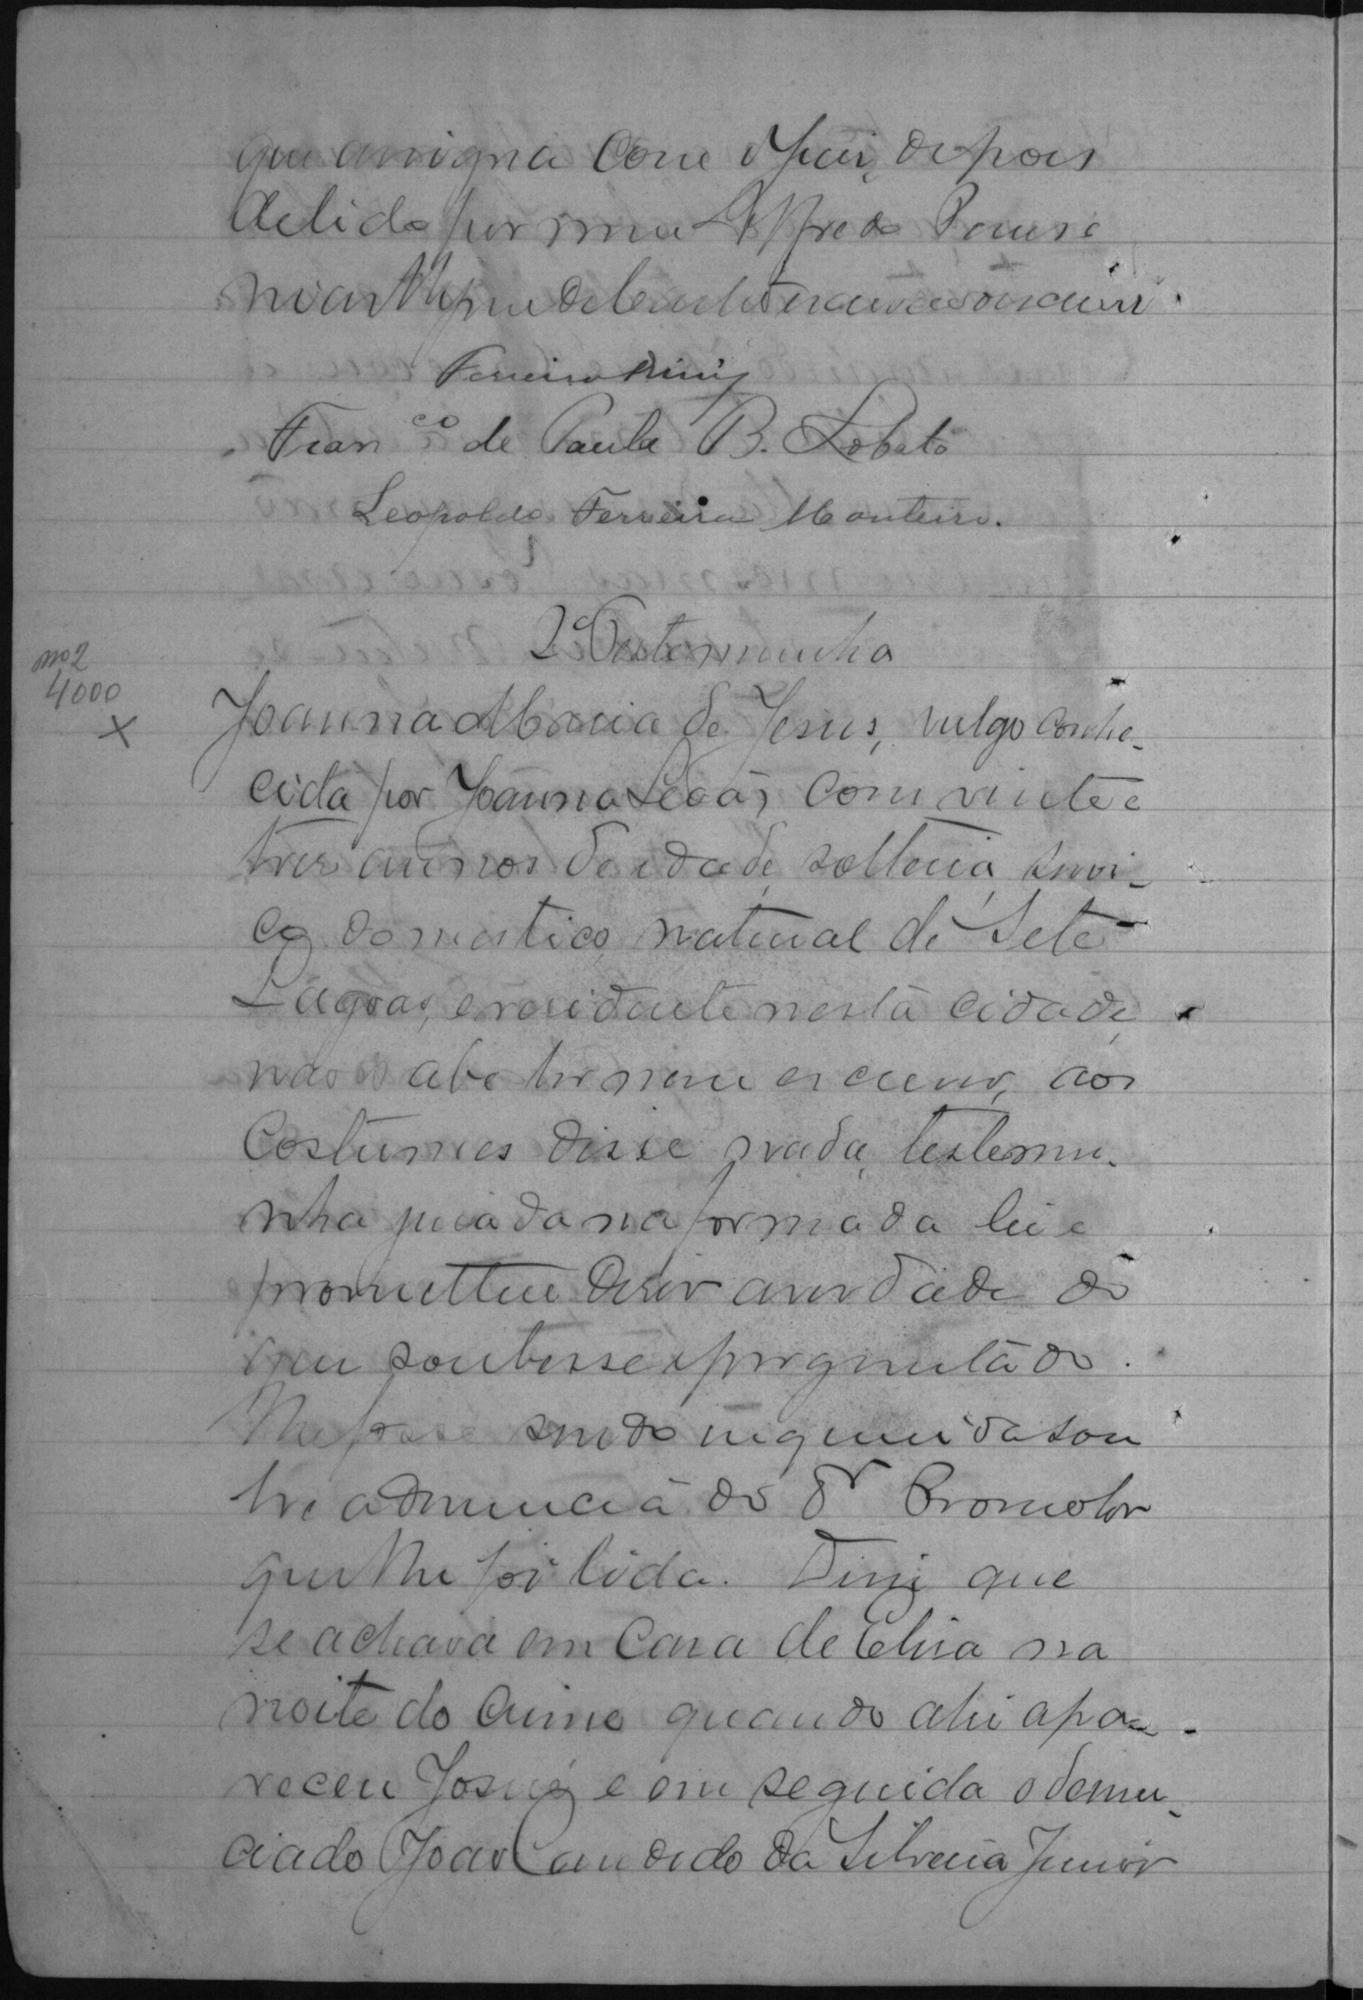 que assigna com o Juiz, depois
de lido por mim Alfredo
Ferreira Diniz
Fran.co de Paula B. Lobato
Leopoldo Ferreira Monteiro.
2ª Testemunha
no 2
4000
X
Joanna Maria de Jesus, vulgo conhe-
cida por Joanna com vinte e
tres annos de idade, solteira, servi-
ço domestico, natural de Sete
Lagoas, e residente nesta cidade,
não sabe ler nem escrever, aos
costumes disse nada, testemu-
nha jurada na forma da lei e
prometteu diser a verdade do
que soubesse e preguntado
lhe fosse sendo inquerida sou
bre a denuncia do Dr Promotor
que lhe foi lida. Disse que
se achava em casa de Elisa na
noite do crime quando ahi apa-
receu Josué e em seguida o denun-
ciado João Candido da Silveira Junior